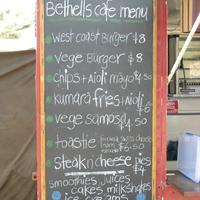 Bethells cafe menu
west coast Burger $8
vege Burger $8
chips + aioli mayo $4.50
kumara fries + aioli $6
vege samosa $4
toastie $6.50
steak n cheese pies $4
smoothies juices
cakes milkshakes
ice creams